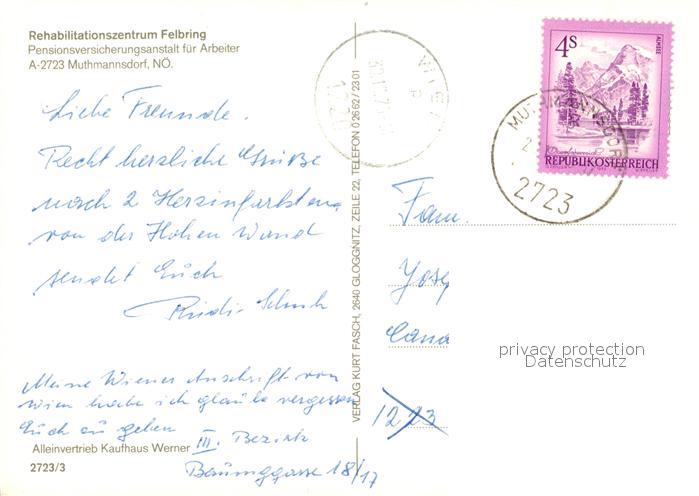 Rehabilitationszentrum Felbring
Pensionsversicherungsanstalt für Arbeiter
A-2723 Muthmannsdorf, NÖ.
Liebe Freunde.
Recht herzliche Grüße
nach 2 Herzinfarkten
von der Hohen Wand
sendet Euch
Rudi
Meine Wiener Anschrift von
Wien habe ich glaube vergessen
Euch zu geben
III. Bezirk
Baumgasse 18/17
Alleinvertrieb Kaufhaus Werner
2723/3
VERLAG KURT FASCH, 2640 GLOGGNITZ, ZEILE 22, TELEFON 02662/2301
4S
ALMSEE
REPUBLIK ÖSTERREICH
MUTHMANNSDORF
2723
Fam.
Josef
1223
privacy protection
Datenschutz